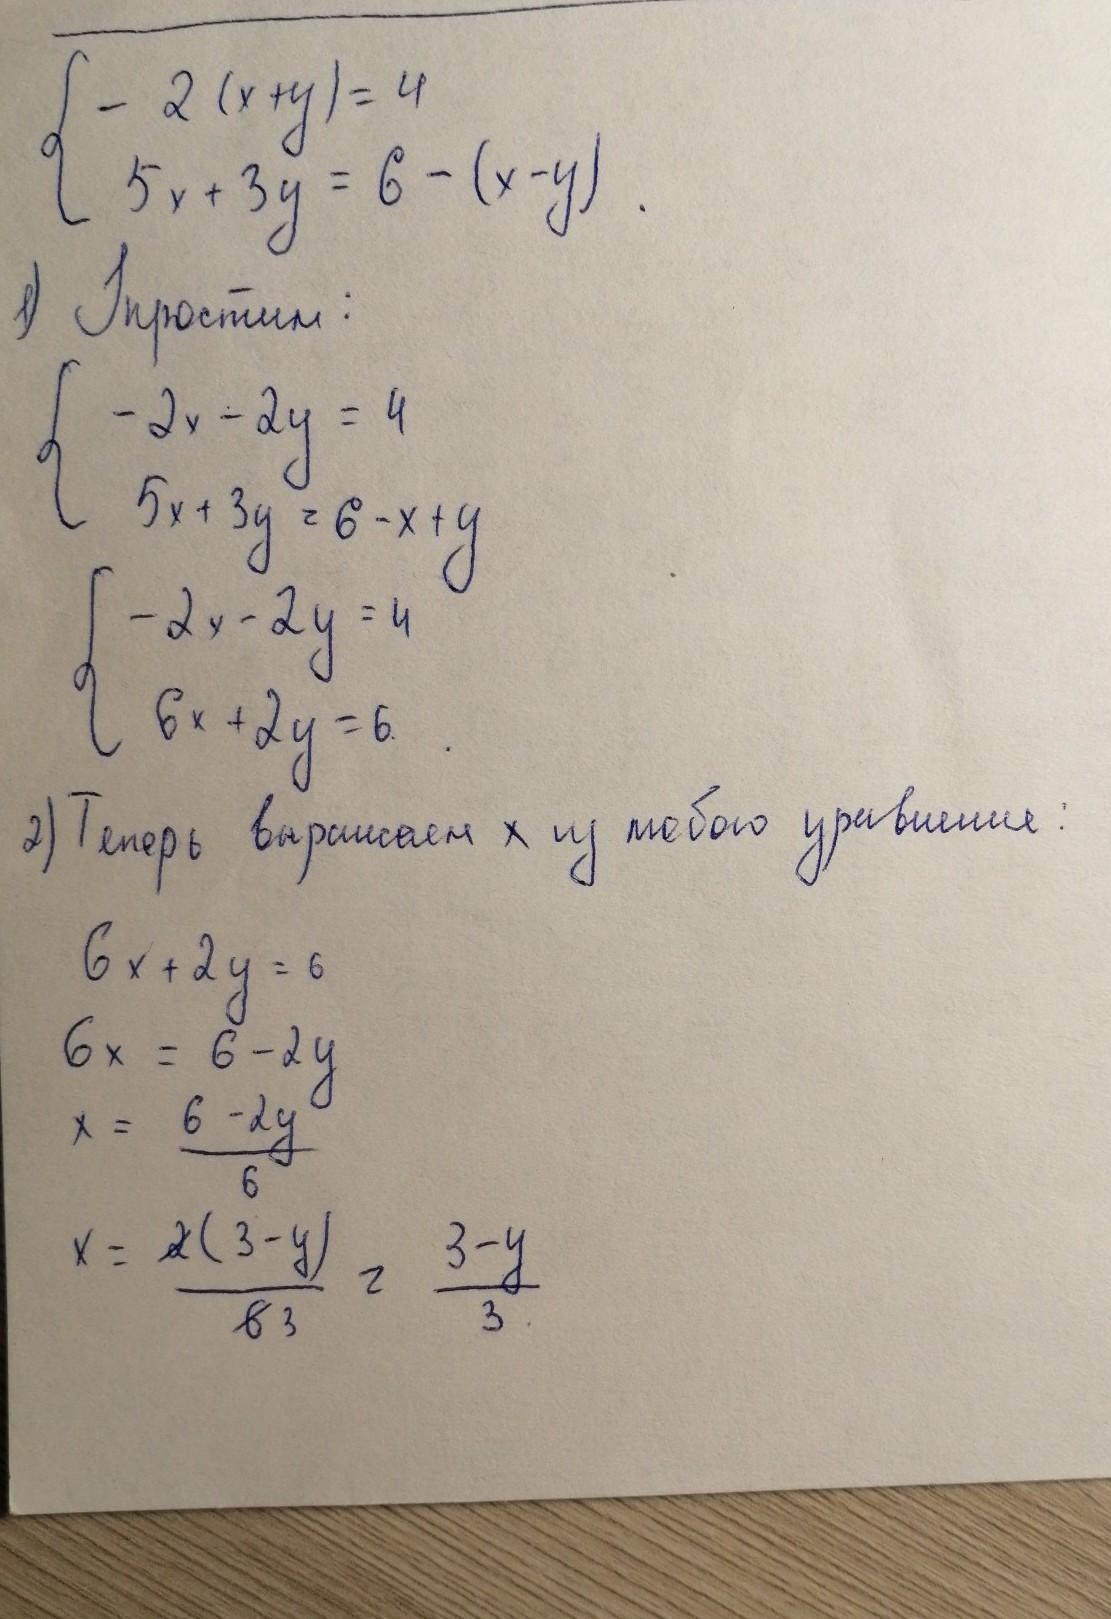 { - 2(x+y) = 4
5x + 3y = 6 - (x-y).
1) Упростим:
{ -2x - 2y = 4
5x + 3y = 6 - x + y
{ -2x - 2y = 4
6x + 2y = 6.
2) Теперь выражаем x из любого уравнения:
6x + 2y = 6
6x = 6 - 2y
x = (6 - 2y)/6
x = 2(3-y)/6 3 = (3-y)/3.